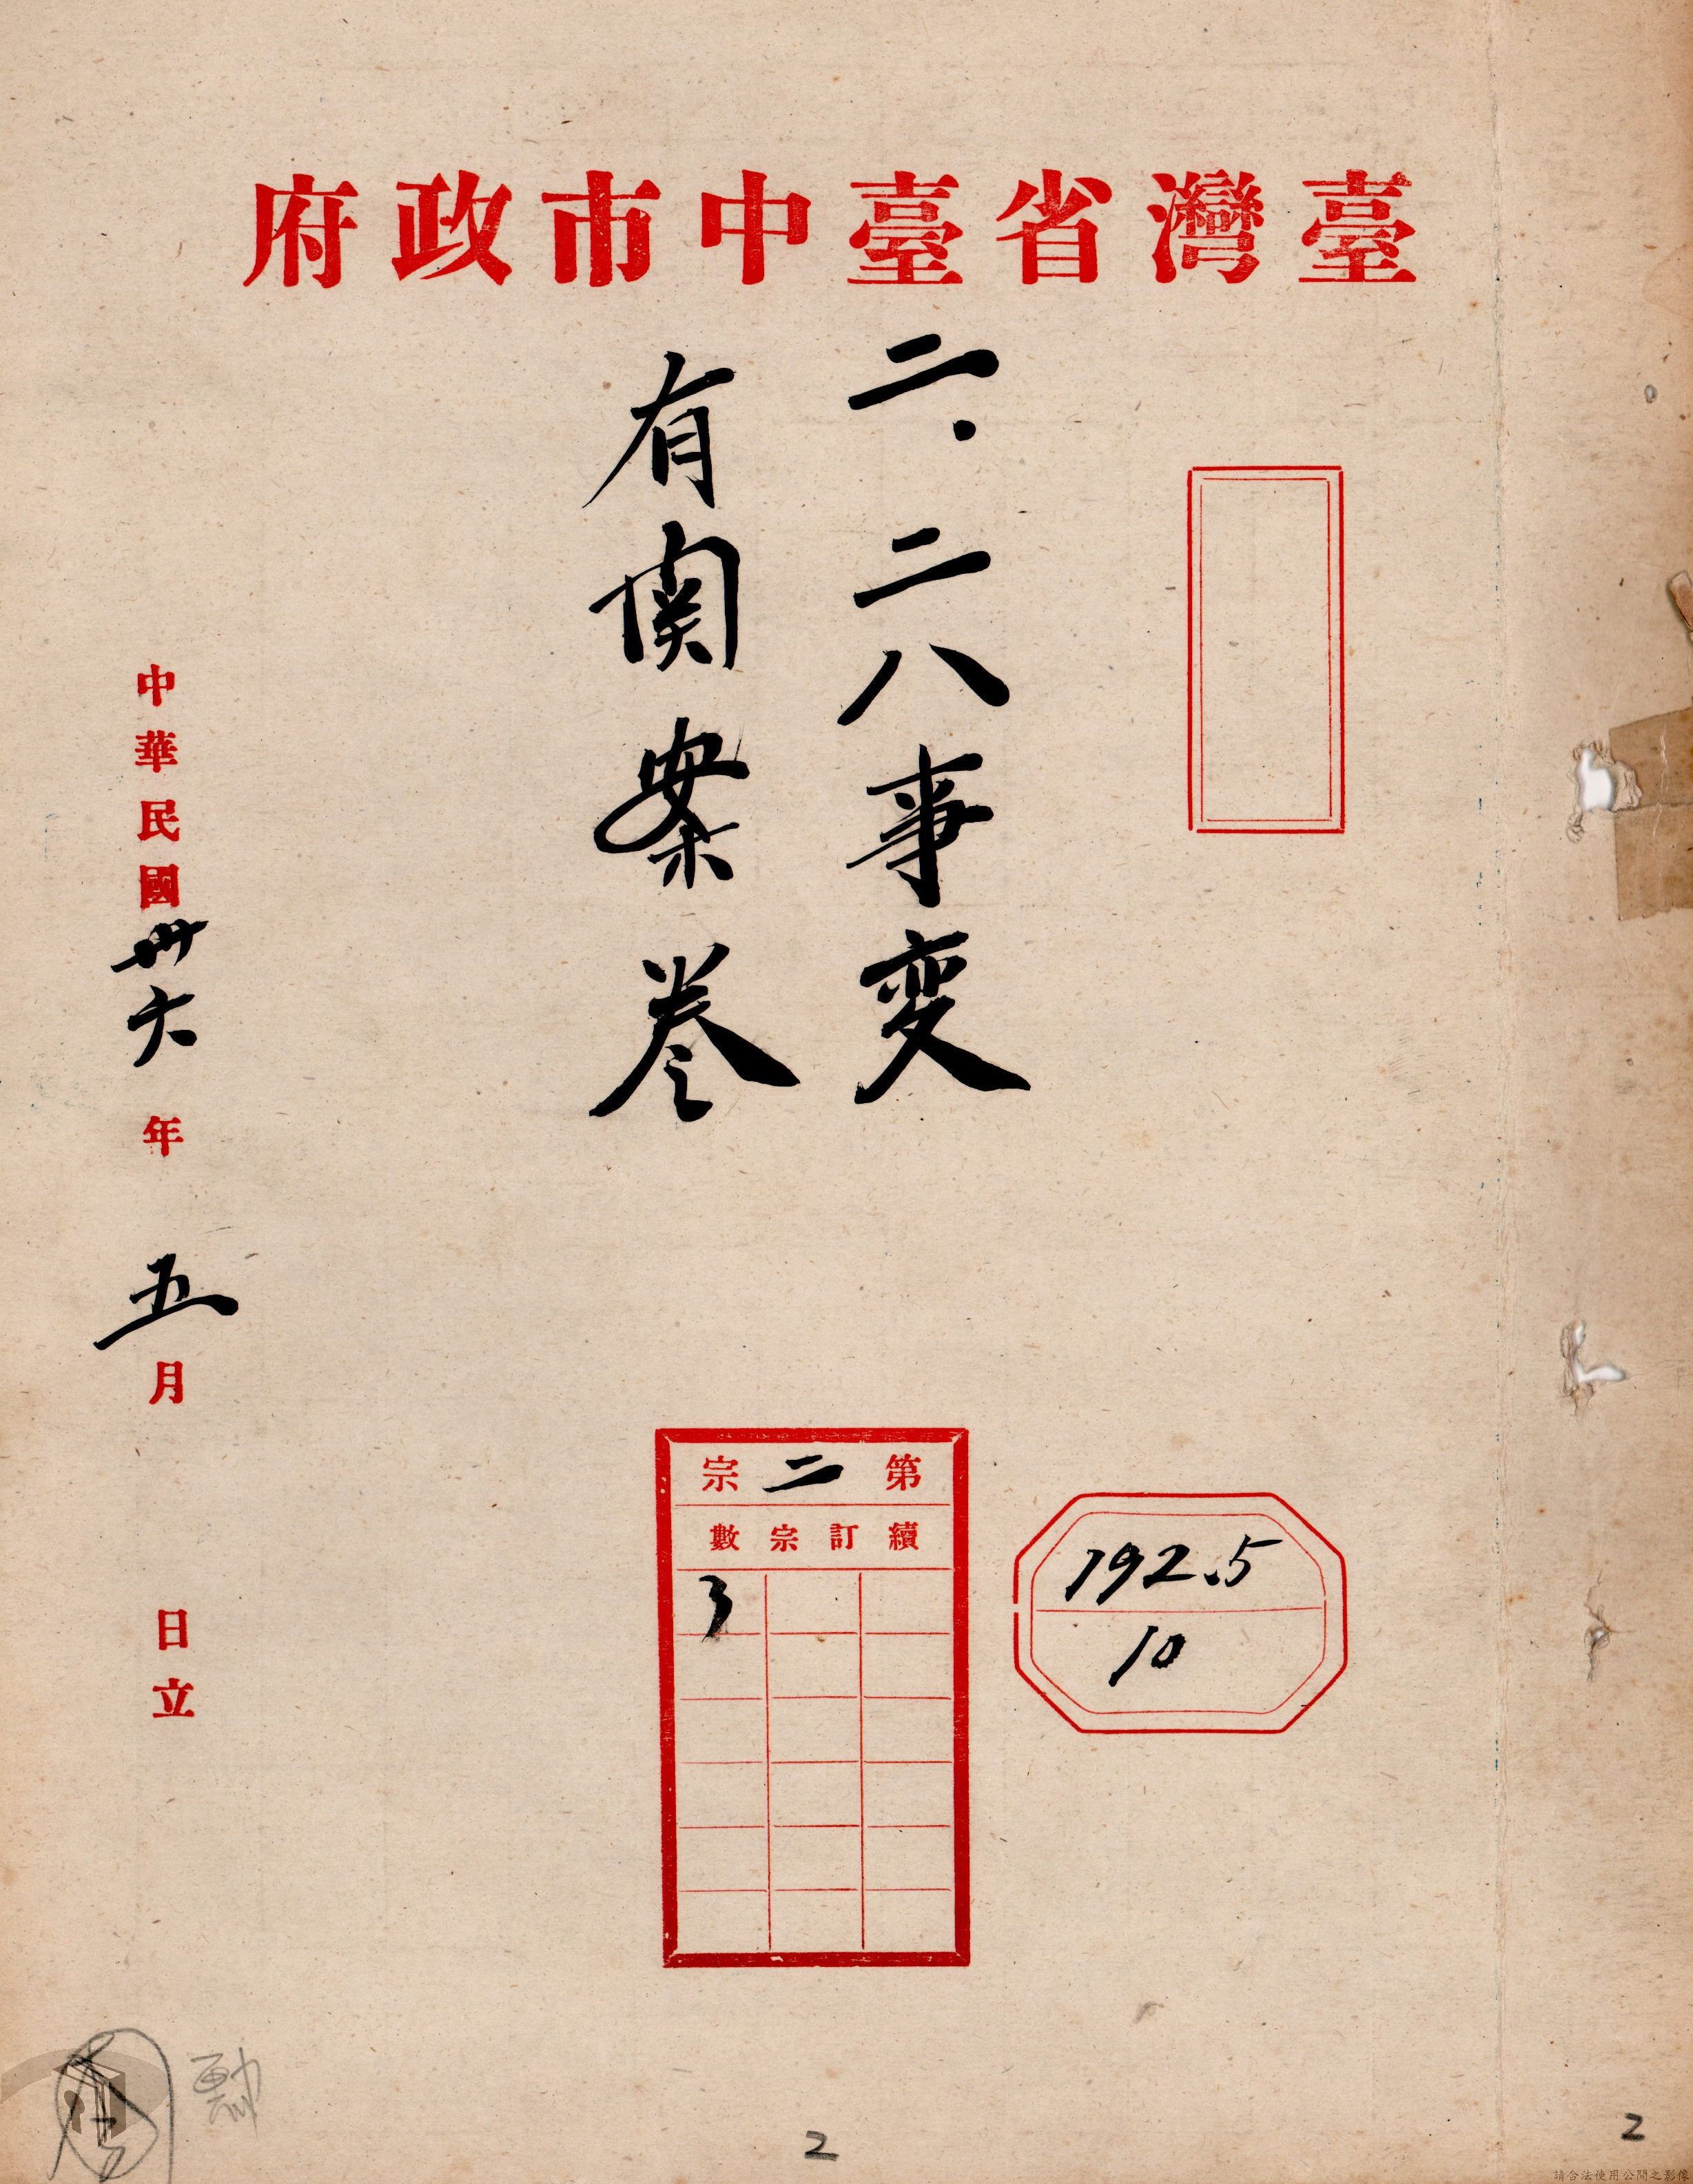 臺灣省臺中市政府
二.二八事変
有関案巻
中華民國卅六年五月日立
第二宗
續訂宗數
3
192.5
10
勳
2
2
請合法使用公開之影像